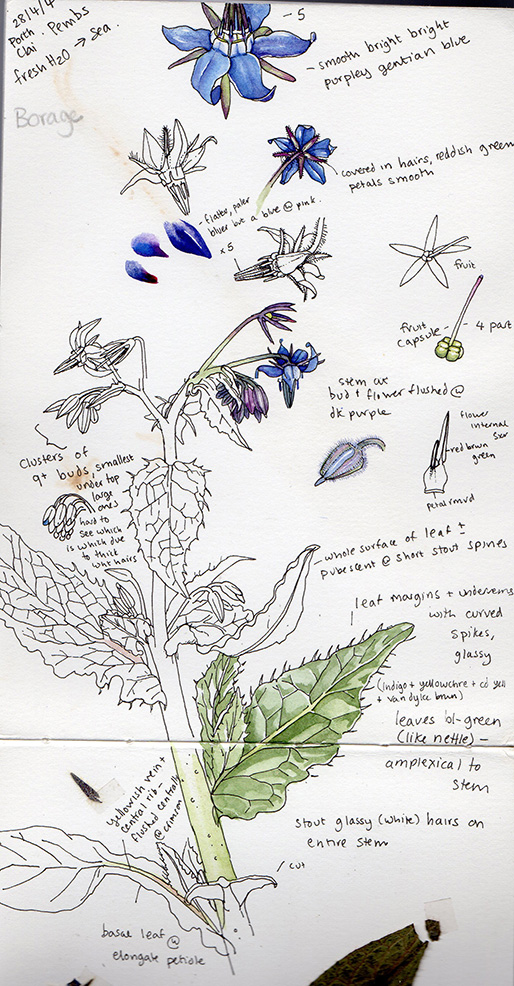 28/4/4
Porth
Clai. Pembs
fresh H2O → Sea.
Borage
5
- smooth bright bright
purpley gentian blue
covered in hairs, reddish green
petals smooth
- flatter, paler
bluer but a blue @ pink.
x 5
fruit
fruit
capsule
4 part
stem at
bud + flower flushed @
dk purple
flower
internal
5x
red brwn
green
petal rmvd
Clusters of
9+ buds, smallest
under top
large
ones
hard to
see which
is which due
to thick
wht hairs
whole surface of leaf ±
pubescent @ short stout spines
leaf margins + underveins
with curved
spikes,
glassy
(indigo + yellowchre + cd yell
+ van dyke brwn)
leaves bl-green
(like nettle) -
amplexical to
stem
yellowish vein +
central rib -
flushed centrally
@ crimson
stout glassy (white) hairs on
entire stem
cut
basal leaf
@
elongate petiole